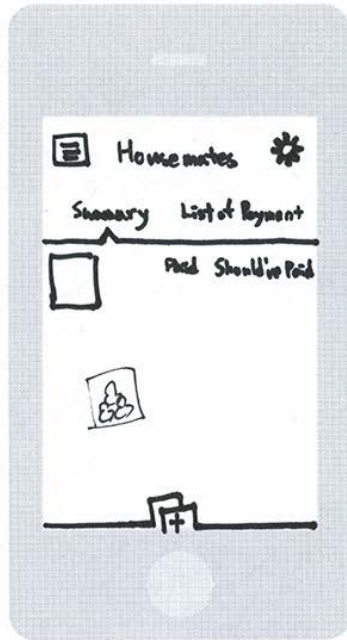 Housemates
Summary List of Payment
Paid Should've Paid
+